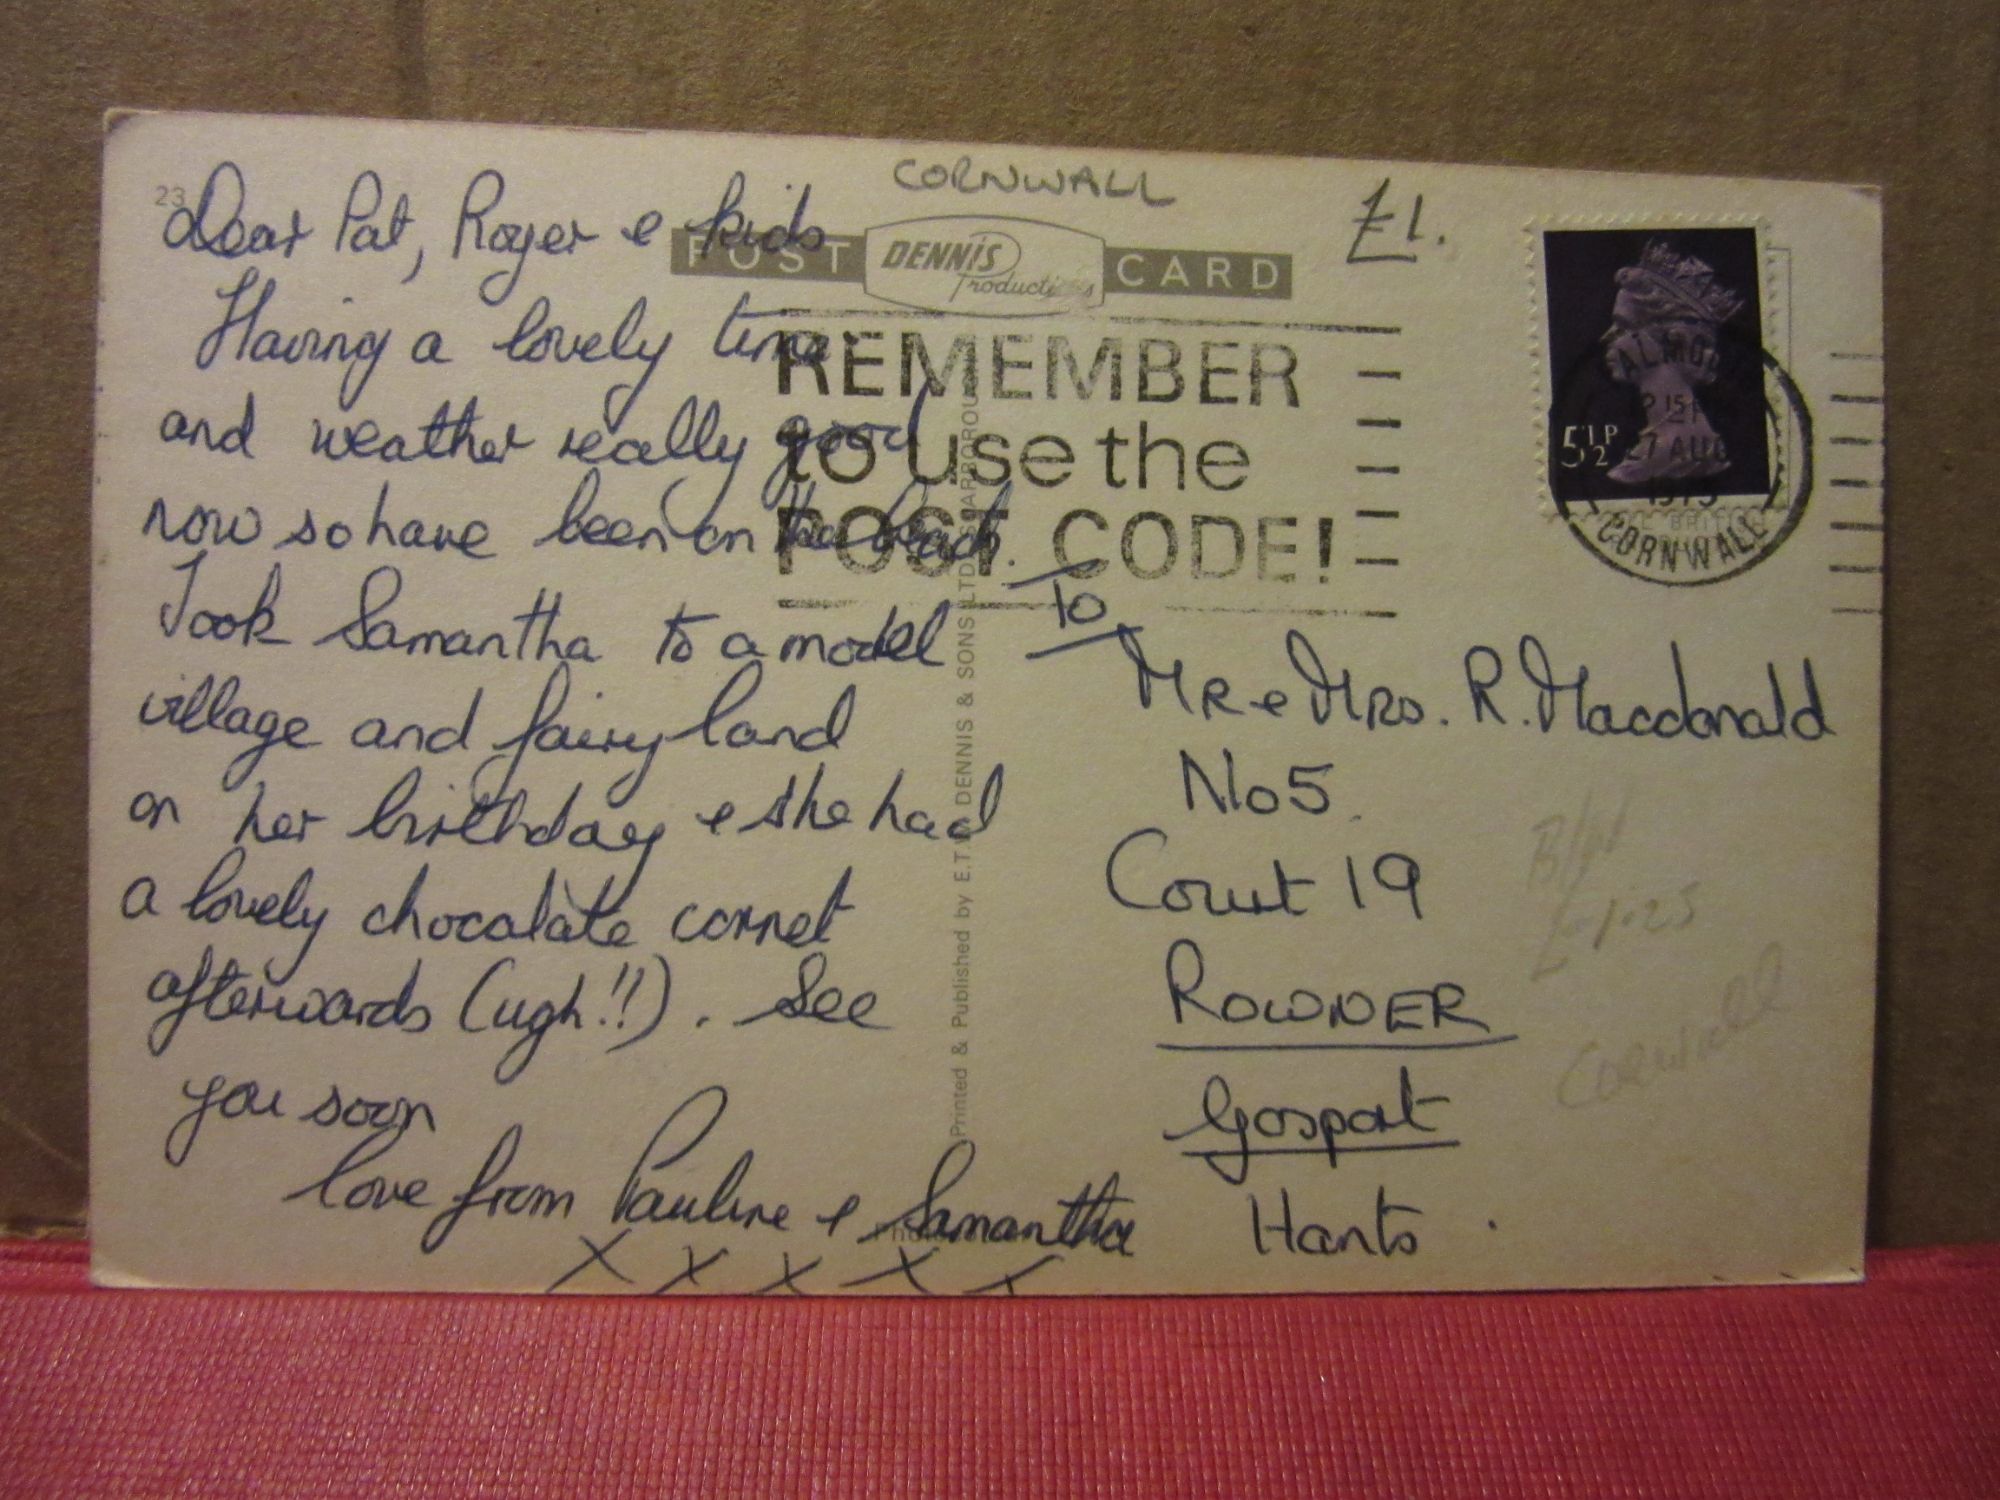 CORNWALL
£1.
23
POST DENNIS Productions CARD
REMEMBER
to use the
POST CODE!
5½P
ALMOU
15
27 AUG
CORNWALL
Dear Pat, Roger & kids
Having a lovely time
and weather really good
now so have been on the beach.
Took Samantha to a model
village and fairy land
on her birthday & she had
a lovely chocolate cornet
afterwards (ugh!!). See
you soon
love from Pauline & Samantha
X X X X X
Printed & Published by E.T.W. DENNIS & SONS LTD. SCARBOROUGH
To
Mr & Mrs. R. Macdonald
No 5.
Court 19
ROWNER
Gosport
Hants.
£1.25
Cornwall